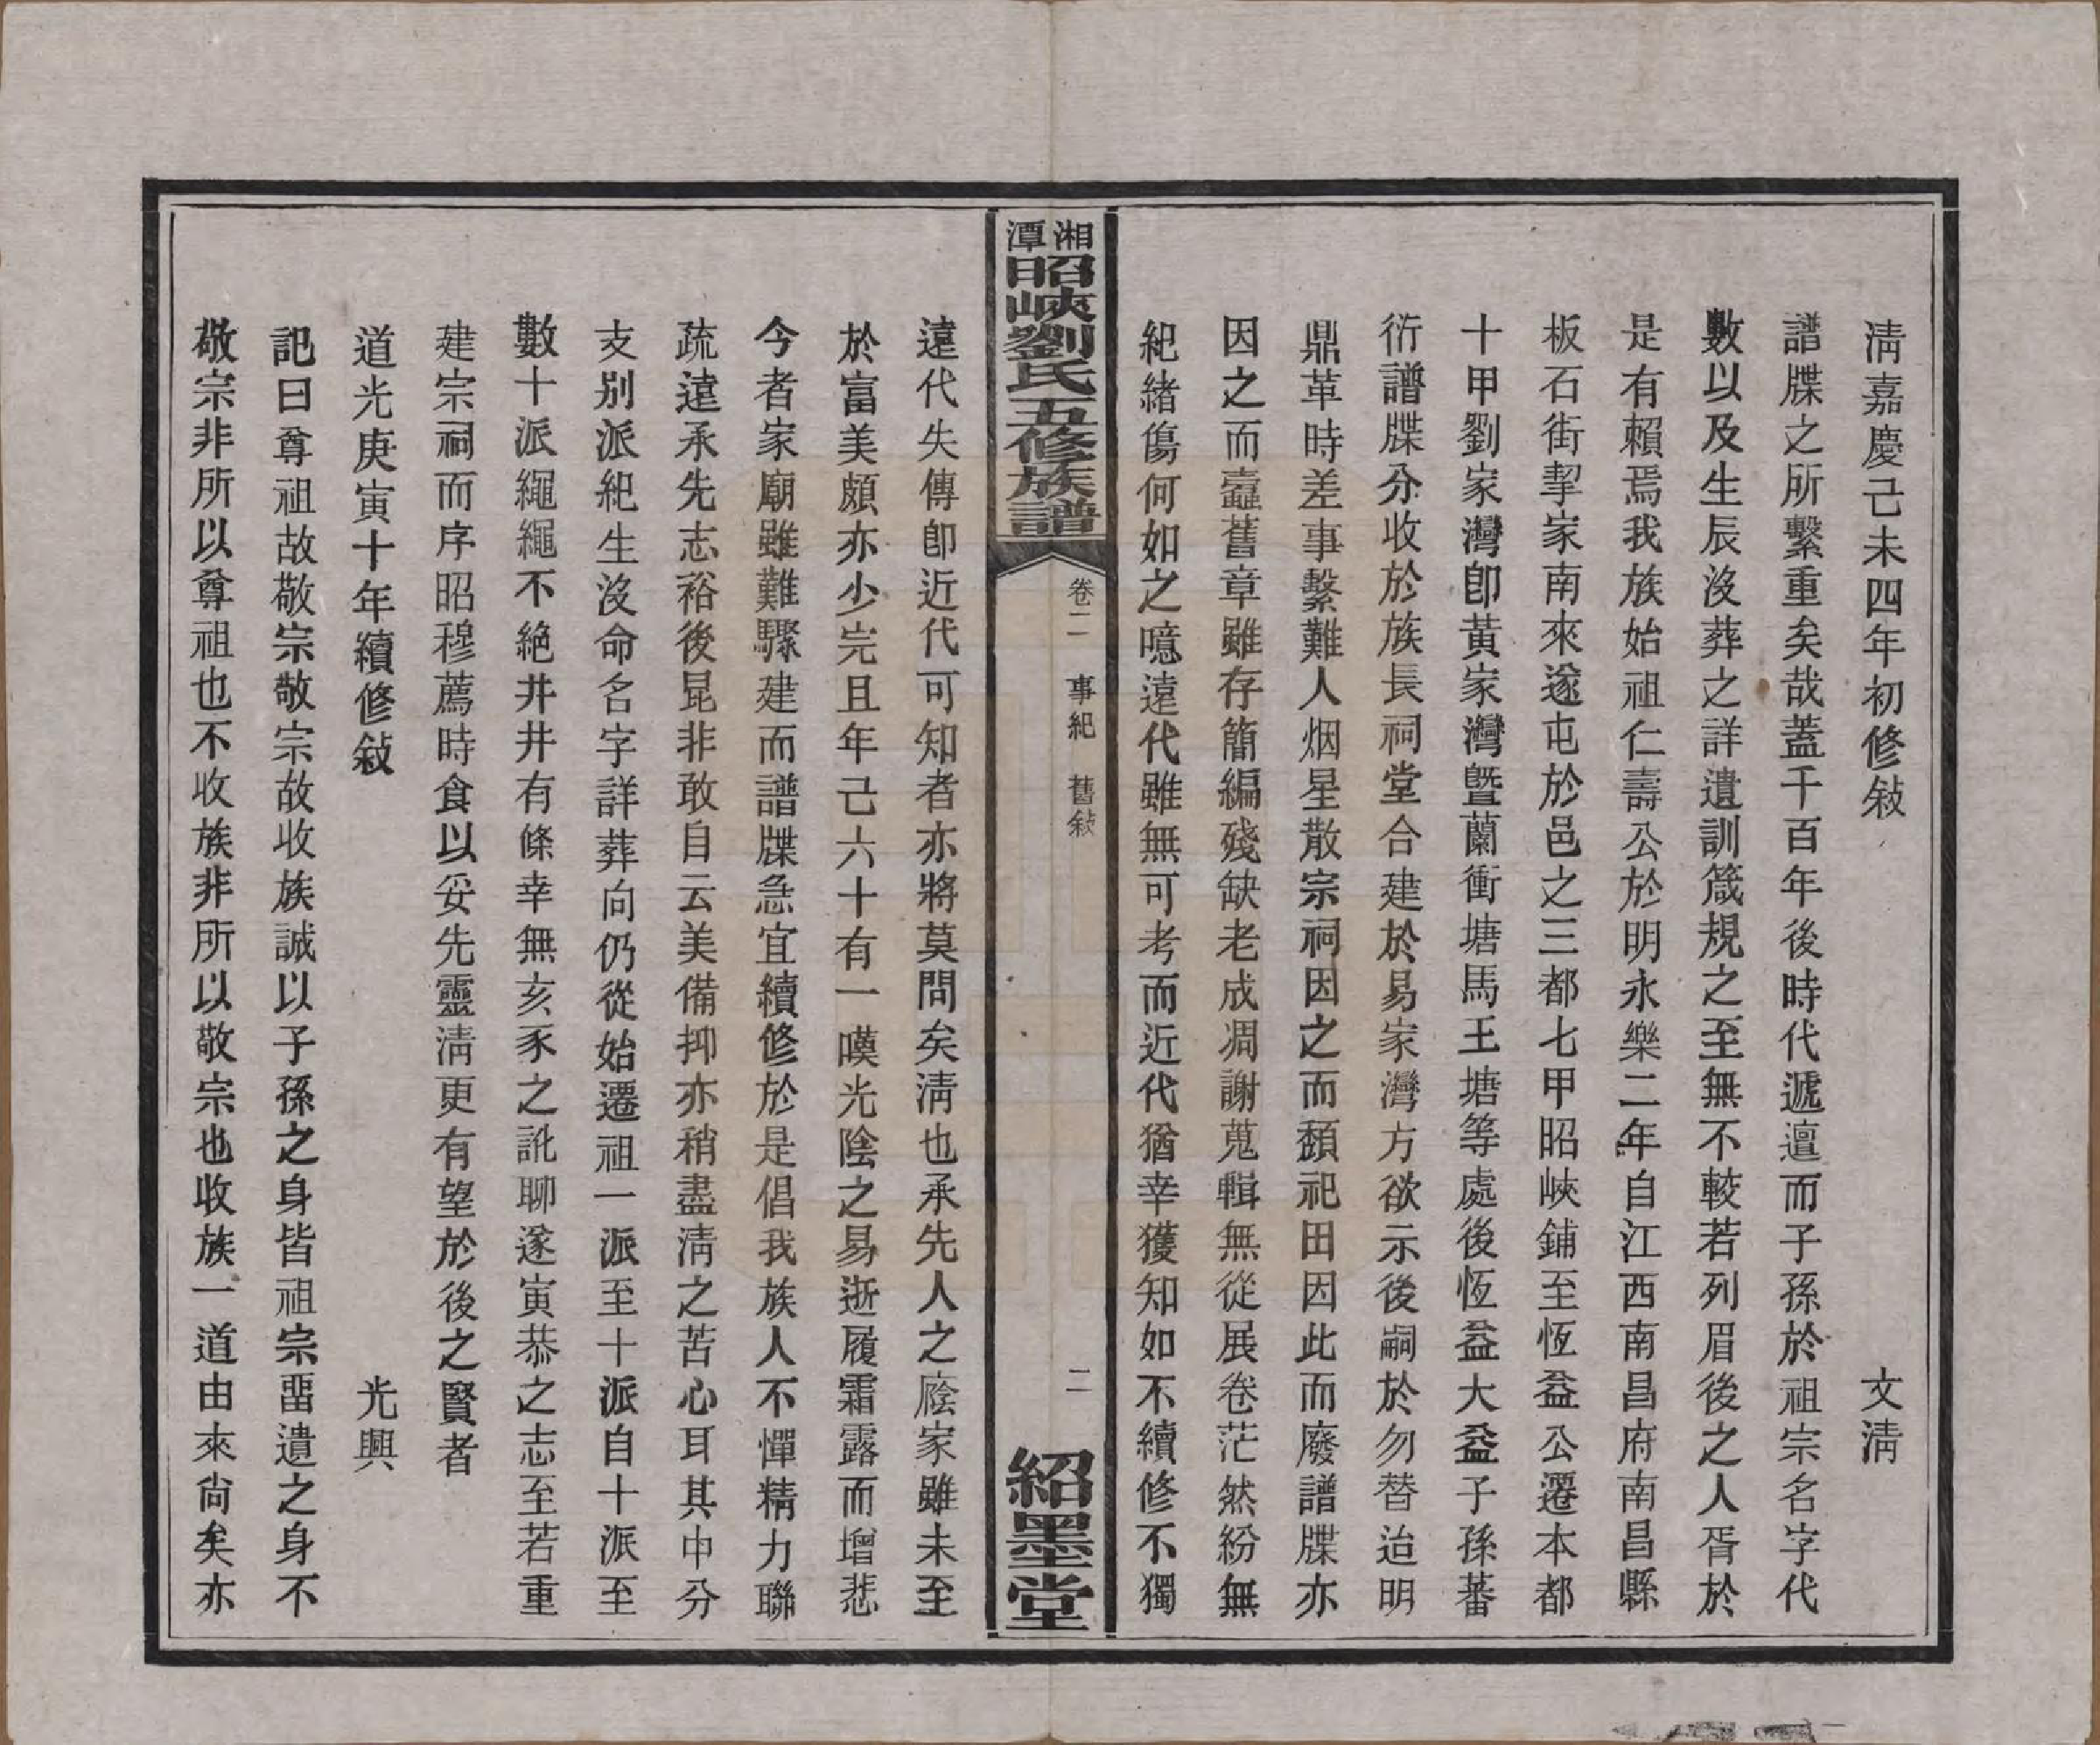 淸嘉慶己未四年初修敍　文淸
譜牒之所繫重矣哉蓋千百年後時代遞邅而子孫於祖宗名字代
數以及生辰沒葬之詳遺訓箴規之至無不較若列眉後之人胥於
是有賴焉我族始祖仁壽公於明永樂二年自江西南昌府南昌縣
板石街挈家南來遂屯於邑之三都七甲昭峽鋪至恆益公遷本都
十甲劉家灣卽黃家灣暨蘭衝塘馬王塘等處後恆益大益子孫蕃
衍譜牒分收於族長祠堂合建於易家灣方欲示後嗣於勿替迨明
鼎革時差事繫難人烟星散宗祠因之而頹祀田因此而廢譜牒亦
因之而蠧舊章雖存簡編殘缺老成凋謝蒐輯無從展卷茫然紛無
紀緒傷何如之噫遠代雖無可考而近代猶幸獲知如不續修不獨
湘潭昭峽劉氏五修族譜
卷二　事紀　舊敍
二
紹墨堂
遠代失傳卽近代可知者亦將莫問矣淸也承先人之廕家雖未至
於富美頗亦少完且年己六十有一嘆光陰之易逝履霜露而增悲
今者家廟雖難驟建而譜牒急宜續修於是倡我族人不憚精力聯
疏遠承先志裕後昆非敢自云美備抑亦稍盡淸之苦心耳其中分
支別派紀生沒命名字詳葬向仍從始遷祖一派至十派自十派至
數十派繩繩不絶井井有條幸無亥豕之訛聊遂寅恭之志至若重
建宗祠而序昭穆薦時食以妥先靈淸更有望於後之賢者
道光庚寅十年續修敍　光興
記曰尊祖故敬宗敬宗故收族誠以子孫之身皆祖宗畱遺之身不
敬宗非所以尊祖也不收族非所以敬宗也收族一道由來尙矣亦